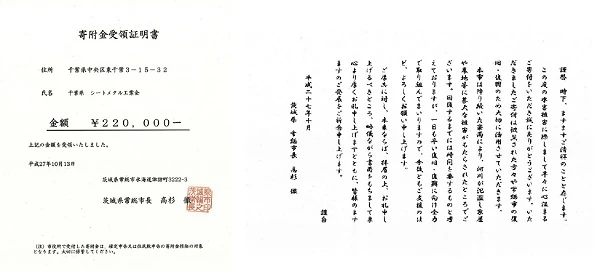 寄附金受領証明書
住所　千葉県中央区東千葉3－15－32
氏名　千葉県　シートメタル工業会
金額　￥220,000―
上記の金額を受領いたしました。
平成27年10月13日
茨城県常総市水海道諏訪町3222-3
茨城県常総市長　高杉　徹
(注) 市役所で受付した寄附金は、確定申告又は住民税申告の寄附金控除の対象
となります。大切に保管してください。
謹啓　時下、ますますご清祥のことと存じます。
この度の水害被害に際しまして早々に心温まる
ご寄付をいただき誠にありがとうございます。いた
だきましたご寄付は被災された方々や常総市の復
旧・復興のため大切に活用させていただきます。
本市は降り続いた豪雨により、河川が氾濫し家屋
や農地等に甚大な被害がもたらされたところでご
ざいます。回復するまでには時間を要するものと考
えておりますが、一日も早い復旧・復興へ向け全力
で取り組んでまいりますので、今後ともご支援のほ
ど、よろしくお願い申し上げます。
ご厚志に対し、本来ならば、拝眉の上、お礼申し
上げるべきところ、略儀ながら書面をもちまして衷
心より厚くお礼申し上げますとともに、皆様のます
ますのご発展をご祈念申し上げます。
謹白
平成二十七年十月
茨城県　常総市長　高杉　徹